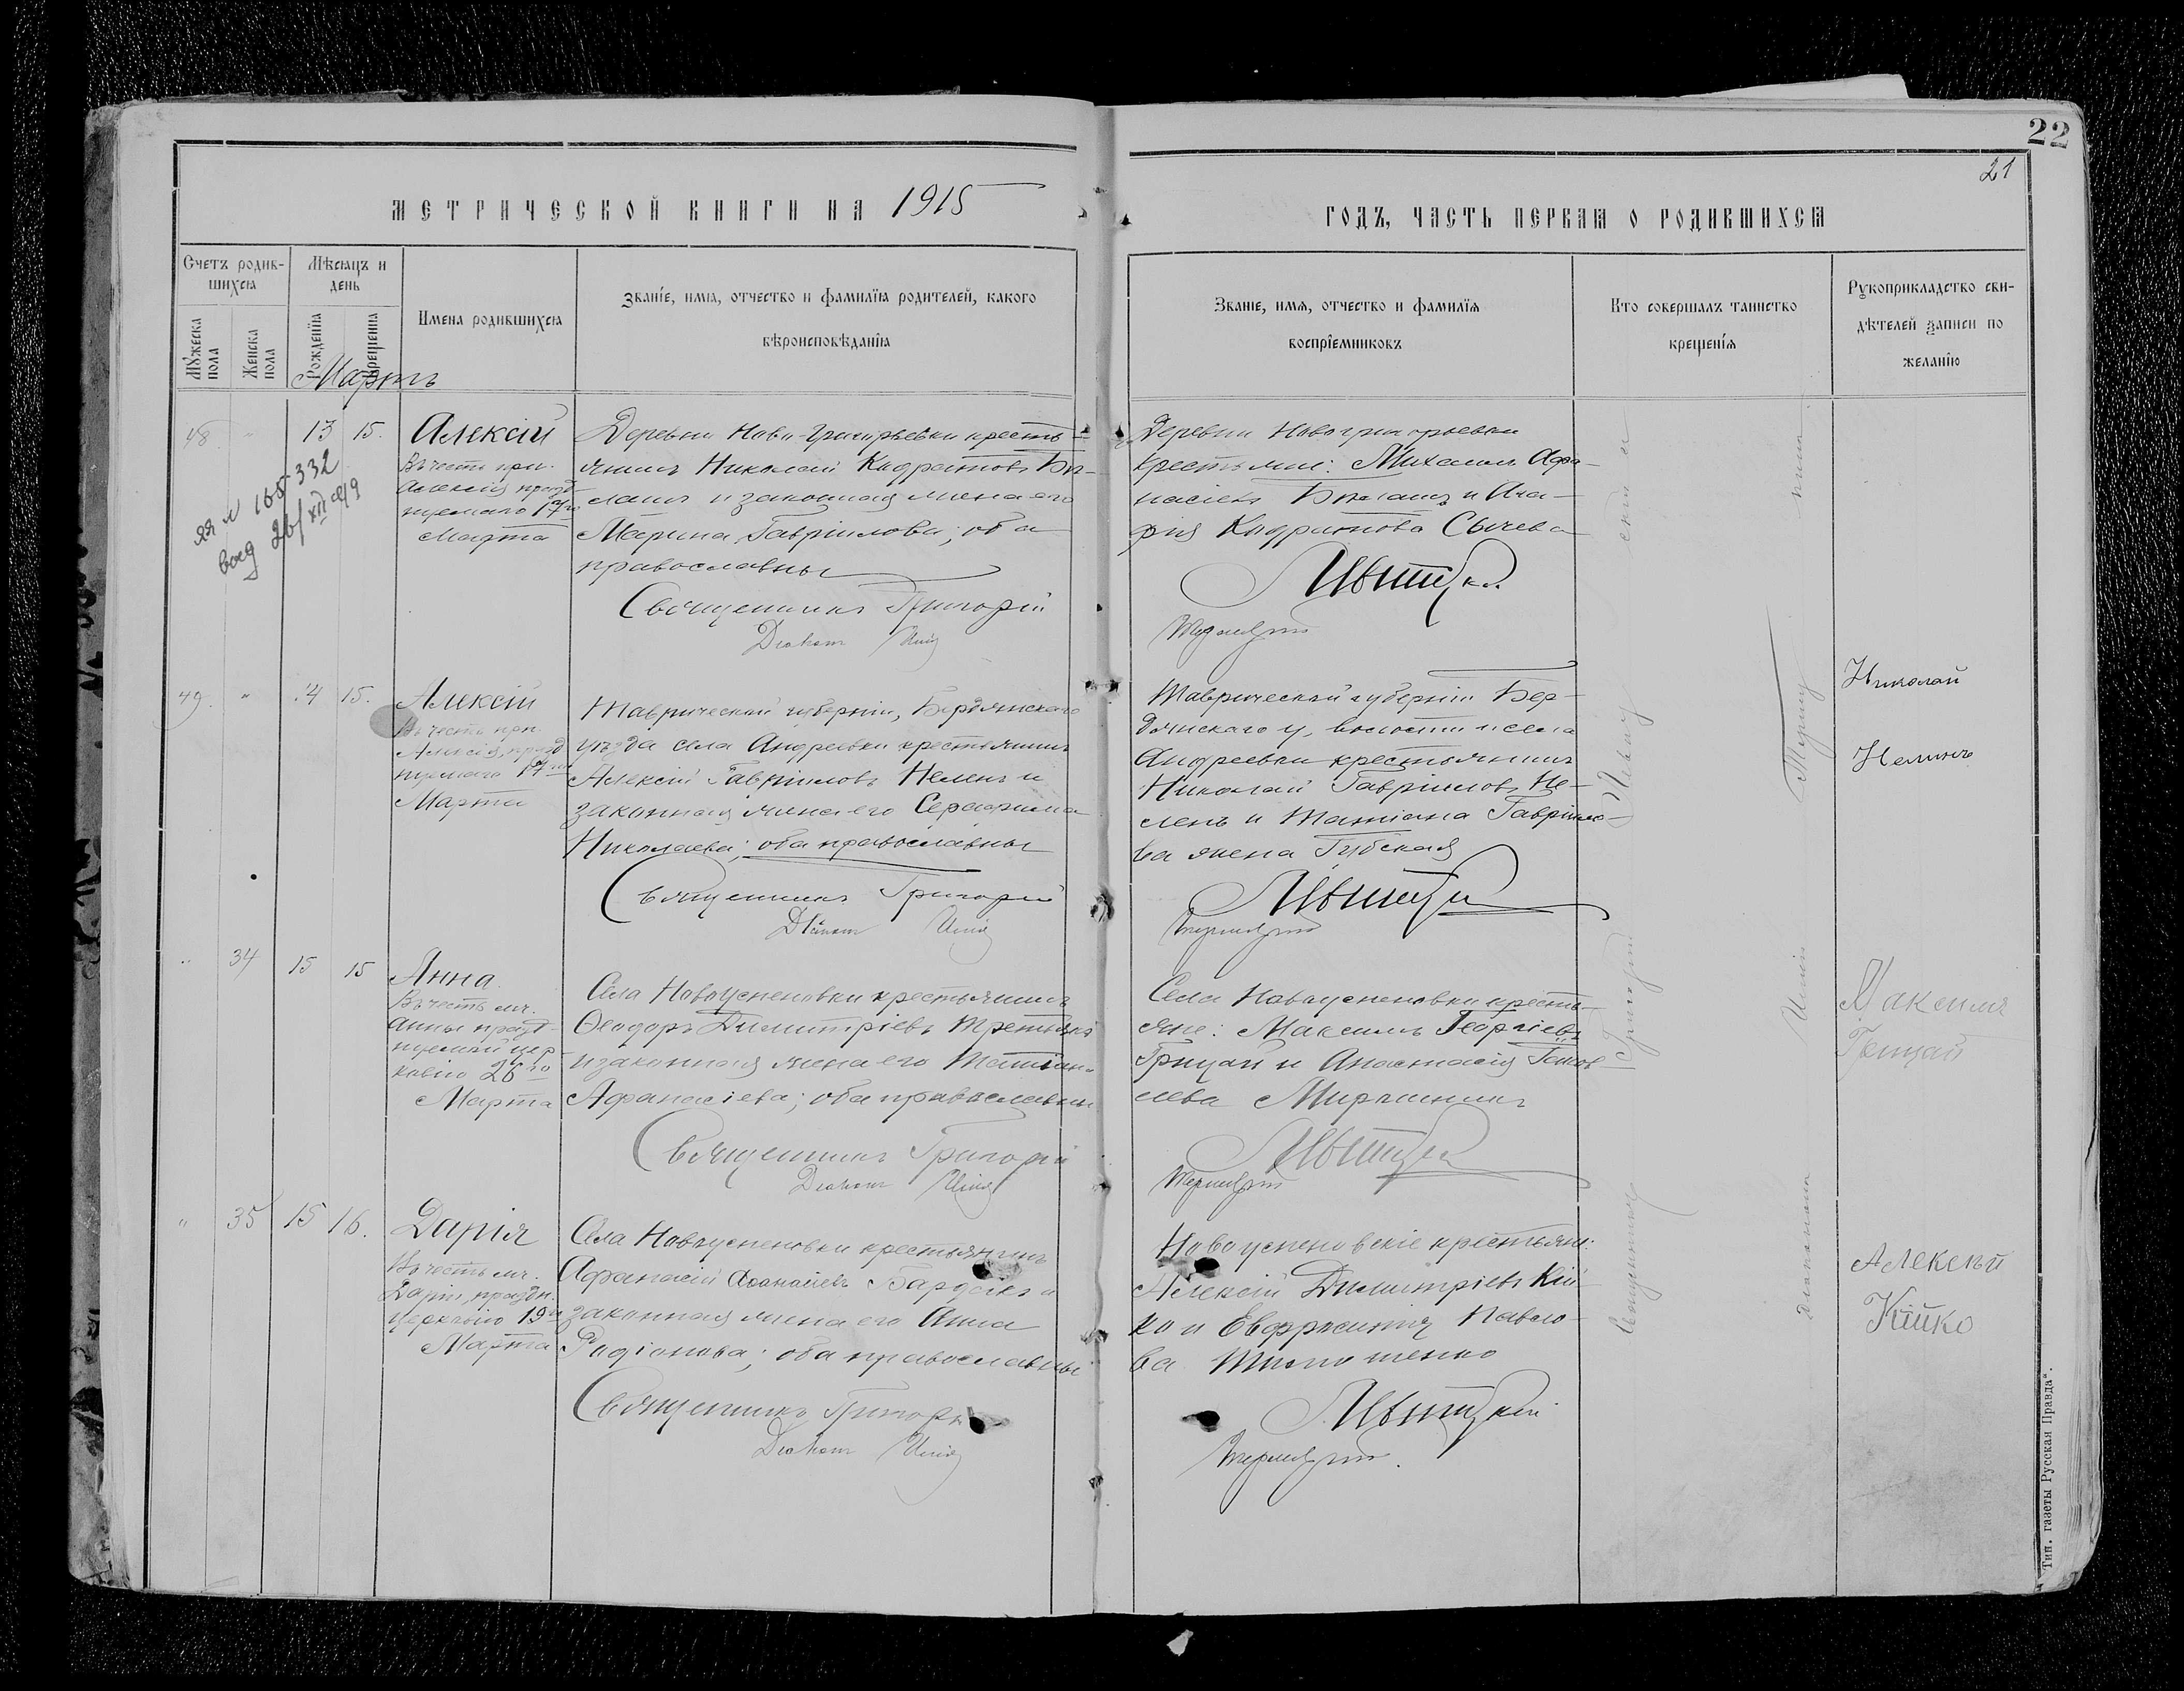 22
21
МЕТРИЧЕСКОЙ КНИГИ НА 1915
ГОДЪ, ЧАСТЬ ПЕРВАЯ О РОДИВШИХСЯ
Счетъ родив-
шихся
Мѣсяцъ и
день
Мужеска пола
Женска пола
Рожденія
Крещенія
Имена родившихся
Званіе, имя, отчество и фамилія родителей, какого
вѣроисповѣданія
Званіе, имя, отчество и фамилія
воспріемниковъ
Кто совершалъ таинство
крещенія
Рукоприкладство сви-
дѣтелей записи по
желанію
Мартъ
48 " 13 15.
Алексій
Въ честь прп.
Алексія празд
нуемаго 17го
Марта
332
Деревни Ново-Григорьевки кресть-
янинъ Николай Кодратовъ Би-
лашъ и законная жена его
Марина Гавріилова; оба
православны
Священникъ Григорій
Діаконъ Илія
Деревни Новогригорьевки
крестьяне: Михаилъ Афа-
насіевъ Билашъ и Ага-
фія Кодратова Сычева
49. " 14 15.
Алексій
Въ честь прп.
Алексія, празд
нуемаго 17го
Марта
Таврической губерніи, Бердянскаго
уѣзда села Андреевки крестьянинъ
Алексій Гавріиловъ Нелень и
законная жена его Серафима
Николаева; оба православны
Священникъ Григорій
Діаконъ Илія
Таврической губерніи Бер-
дянскаго у, волости и села
Андреевки крестьянинъ
Николай Гавріиловъ Не-
лень и Татіана Гавріило-
ва жена Губская
Николай
" 34 15 15
Анна
Въ честь мч.
Анны празд-
нуемой цер
ковію 26го
Марта
Села Новоуспеновки крестьянинъ
Ѳеодоръ Димитріевъ Третьякъ
и законная жена его Татіана
Афанасіева; оба православны
Священникъ Григорій
Діаконъ Илія
Села Новоуспеновки кресть-
яне: Максимъ Георгіевъ
Грицай и Анастасія Іаков-
лева Мирошникъ
Максимъ
Грицай
" 35 15 16.
Дарія
Въ честь мч.
Даріи, праздн.
церковію 19го
Марта
Села Новоуспеновки крестьянинъ
Афанасій Афанасіевъ Бардакъ и
законная жена его Анна
Родіонова; оба православны
Священникъ Григорій
Діаконъ Илія
Новоуспеновскіе крестьяне:
Алексій Димитріевъ Кій-
ко и Евфросинія Павло-
ва Тимошенко
Алексѣй
Кійко
Тип. газеты „Русская Правда“.